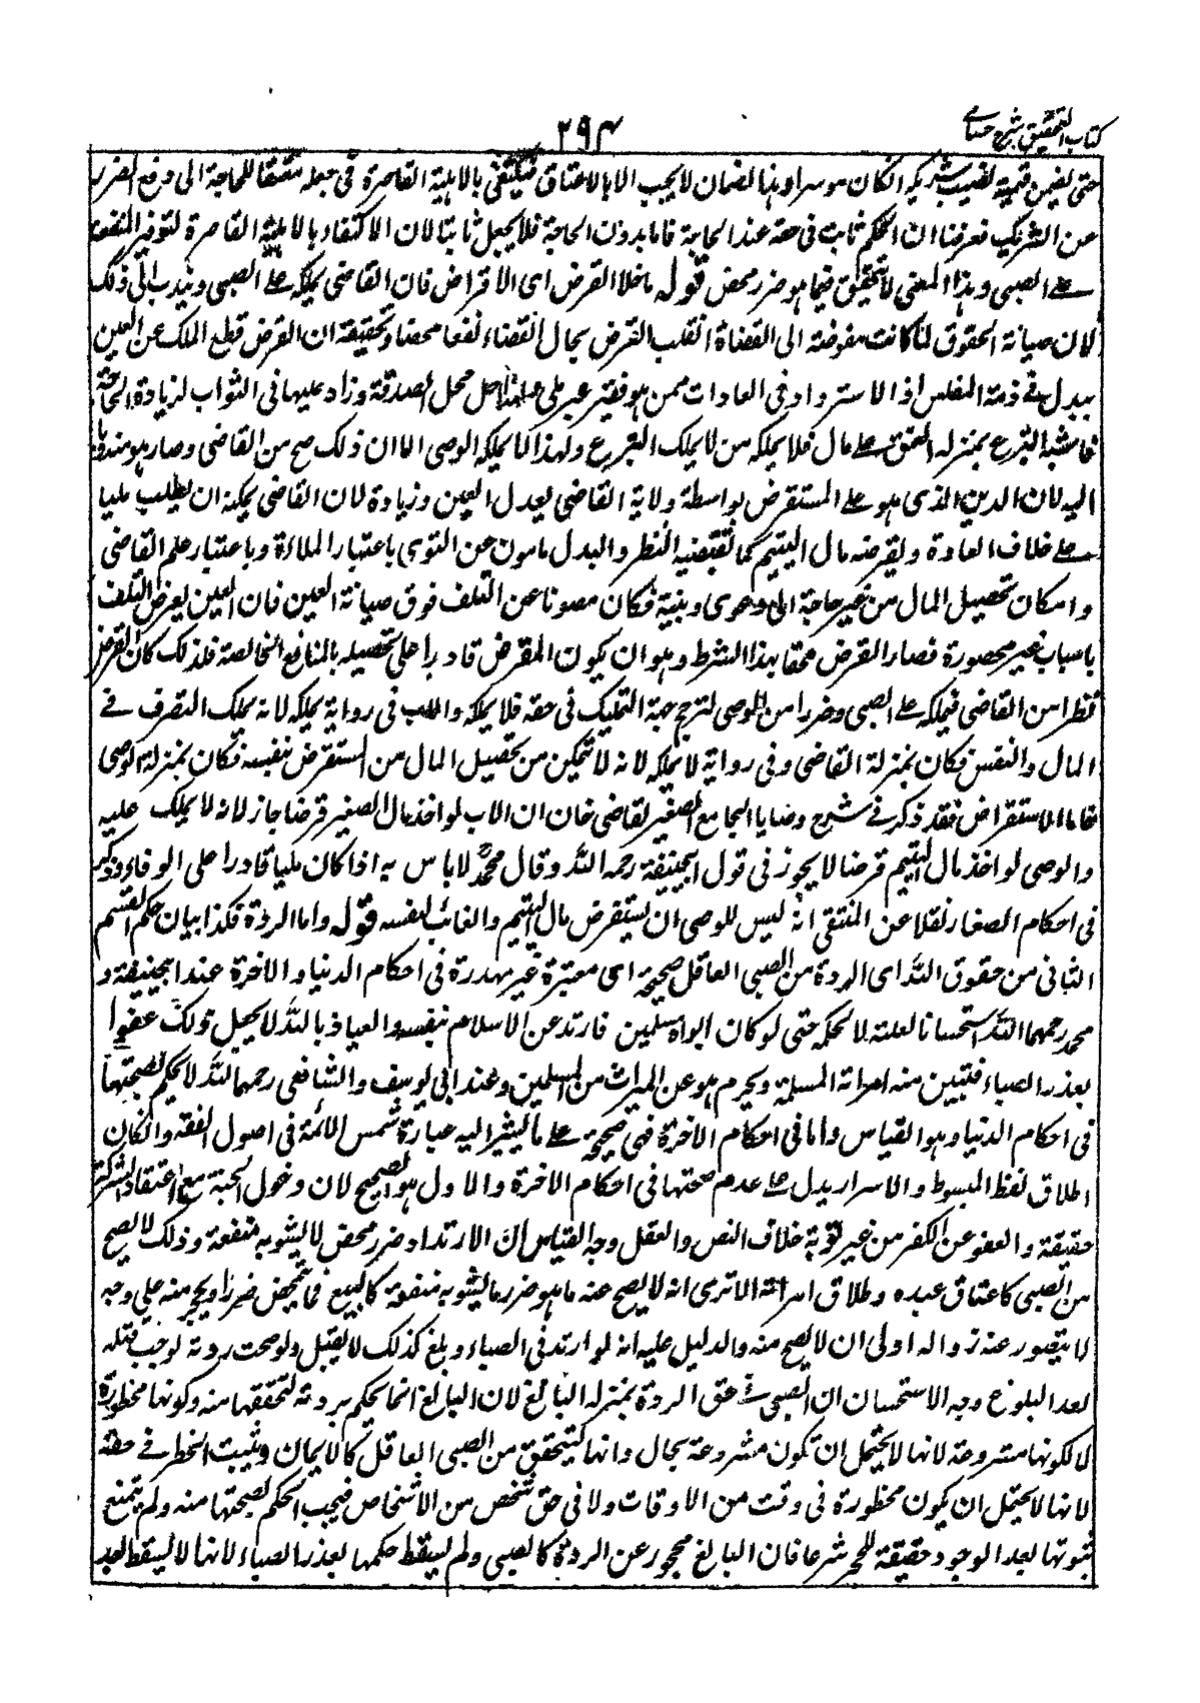 كتاب التحقيق شرح حسامى
٢٩٤
حتى يضمن قيمة نصيب شريكه ان كان موسرا وهذا الضمان لا يجب الا بالاعتاق فيكتفى بالاهلية القاصرة فى جعله معتقا للحاجة الى دفع الضرر
عن الشريك فعرفنا ان الحكم ثابت فى حقه عند الحاجة فاما بدون الحاجة فلا يجعل ثابتا لان الاكتفاء بالاهلية القاصرة لتوفير المنفعة
على الصبى وهذا المعنى لا يتحقق فيما هو ضرر محض قوله ما خلا القرض اى الاقراض فان القاضى يملكه على الصبى ويندب الى ذلك
لان صيانة الحقوق لما كانت مفوضة الى القضاة انقلب القرض بحال القضاء نفعا محضا وتحقيقه ان القرض قطع الملك عن العين
ببدل فى ذمة المفلس اذ الاسترداد فى العادات ممن هو فقير غير ملى حل محل الصدقة وزاد عليها فى الثواب لزيادة الحاجة
فاشبه التبرع بمنزلة العتق على مال فلا يملكه من لا يملك التبرع ولهذا لا يملكه الوصى الا ان ذلك صح من القاضى وصار هو مندوبا
اليه لان الدين الذى هو على المستقرض بواسطة ولاية القاضى يعدل العين وزيادة لان القاضى يمكنه ان يطلب مليا
على خلاف العادة ويقرضه مال اليتيم كما تقتضيه النظر والبدل مامون عن التوى باعتبار الملاءة وباعتبار علم القاضى
وامكان تحصيل المال من غير حاجة الى دعوى وبينة فكان مصونا عن التلف فوق صيانة العين فان العين يعرض التلف
باسباب غير محصورة فصار القرض محقا بهذا الشرط وهو ان يكون المقرض قادرا على تحصيله بالمنافع الخالصة فلذلك كان القرض
نظرا من القاضى فيملكه على الصبى وضررا من الوصى لترجح جهة التمليك فى حقه فلا يملكه والاب فى رواية يملكه لانه يملك التصرف فى
المال والنفس فكان بمنزلة القاضى وفى رواية لا يملكه لانه لا يتمكن من تحصيل المال من المستقرض بنفسه فكان بمنزلة الوصى
فاما الاستقراض فقد ذكر فى شرح وصايا الجامع الصغير لقاضى خان ان الاب لو اخذ مال الصغير قرضا جاز لانه لا يملك عليه
والوصى لو اخذ مال اليتيم قرضا لا يجوز فى قول ابيحنيفة رحمه الله وقال محمد لا باس به اذا كان مليا قادرا على الوفاء وذكر
فى احكام الصغار نقلا عن المنتقى انه ليس للوصى ان يستقرض مال اليتيم والغائب لنفسه قوله واما الردة فكذا بيان حكم القسم
الثانى من حقوق الله اى الردة من الصبى العاقل صحيحة اى معتبرة غير مهدرة فى احكام الدنيا والاخرة عند ابيحنيفة و
محمد رحمهما الله استحسانا لعلته لا لحكمه حتى لو كان ابواه مسلمين فارتد عن الاسلام بنفسه والعياذ بالله لا يجعل ذلك عفوا
بعذر الصباء فتبين منه امراته المسلمة ويحرم هو عن الميراث من المسلمين وعند ابى يوسف والشافعى رحمهما الله لا يحكم بصحتها
فى احكام الدنيا وهو القياس واما فى احكام الاخرة فهى صحيحة على ما يشير اليه عبارة شمس الائمة فى اصول الفقه وان كان
اطلاق لفظ المبسوط والاسرار يدل على عدم صحتها فى احكام الاخرة والاول هو الصحيح لان دخول الجنة مع اعتقاد الشرك
حقيقة والعفو عن الكفر من غير توبة خلاف النص والعقل وجه القياس ان الارتداد ضرر محض لا يشوبه منفعة وذلك لا يصح
من الصبى كاعتاق عبده وطلاق امراته الا ترى انه لا يصح عنه ما هو ضرر ما يشوبه منفعة كالبيع فما يتمحض ضررا ويحجر منه على وجه
لا يتصور عنه زواله اولى ان لا يصح منه والدليل عليه انه لو ارتد فى الصباء وبلغ كذلك لا يقتل ولو صحت ردته لوجب قتله
بعد البلوغ وجه الاستحسان ان الصبى فى حق الردة بمنزلة البالغ لان البالغ انما يحكم بردته لتحققها منه وكونها محظورة
لا لكونها مشروعة لانها لا يحتمل ان تكون مشروعة بحال وانها تتحقق من الصبى العاقل كالايمان ويثبت الخطر فى حقه
لانها لا يحتمل ان يكون محظورة فى وقت من الاوقات ولا فى حق شخص من الاشخاص فيجب الحكم بصحتها منه ولم يمتنع
ثبوتها بعد الوجود حقيقة للحجر شرعا فان البالغ محجور عن الردة كالصبى ولم يسقط حكمها بعذر الصباء لانها لا يسقط بعد